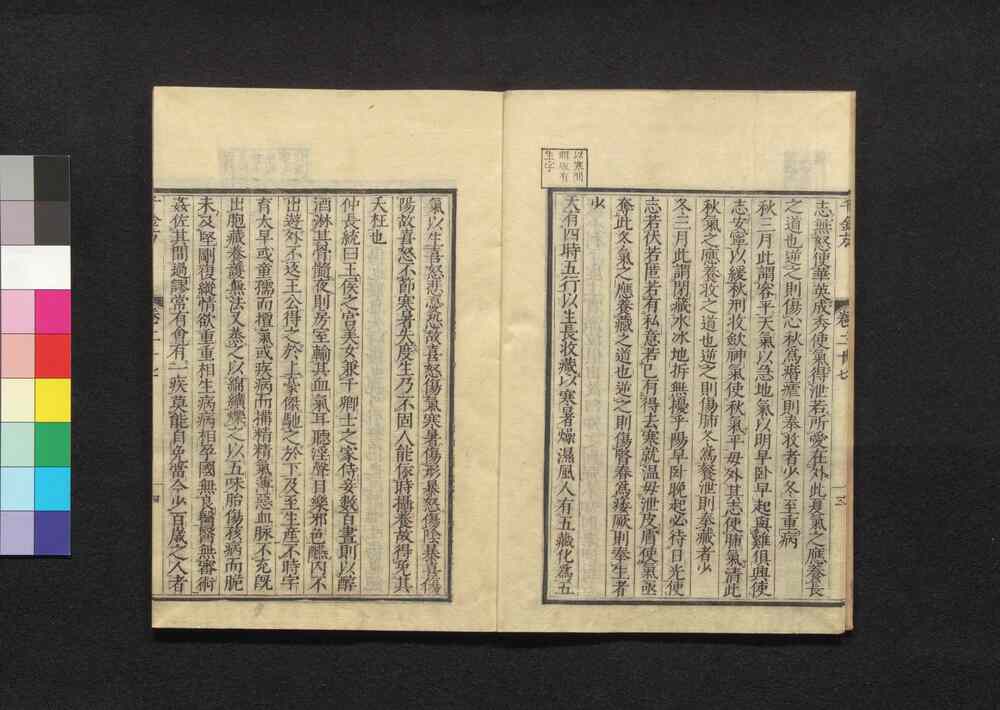 志無怒使華英成秀使氣得泄若所愛在外此夏氣之應養長
之道也逆之則傷心秋爲痎瘧則奉收者少冬至重病
秋三月此謂容平天氣以急地氣以明早卧早起與雞俱興使
志安寧以緩秋刑收斂神氣使秋氣平毋外其志使肺氣清此
秋氣之應養收之道也逆之則傷肺冬爲飱泄則奉藏者少
冬三月此謂閉藏水冰地拆無擾乎陽早卧晚起必待日光使
志若伏若匿若有私意若已有得去寒就温毋泄皮膚使氣亟
奪此冬氣之應養藏之道也逆之則傷腎春爲痿厥則奉生者
少
天有四時五行以生長收藏以寒暑燥濕風人有五藏化爲五
千金方
卷二十七
三
氣以生喜怒悲憂恐故喜怒傷氣寒暑傷形暴怒傷陰暴喜傷
陽故喜怒不節寒暑失度生乃不固人能依時攝養故得免其
夭枉也
仲長統曰王侯之宮美女兼千卿士之家侍妾數百晝則以醇
酒淋其骨髓夜則房室輸其血氣耳聽淫聲目樂邪色醼內不
出遊外不返王公得之於上豪傑馳之於下及至生産不時字
育太早或童孺而擅氣或疾病而搆精精氣薄惡血脉不充旣
出胞藏養護無法又蒸之以綿纊爍之以五味胎傷孩病而脆
未及堅剛復縱情欲重重相生病病相孕國無良醫醫無審術
姦佐其間過謬常有會有一疾莫能自免當今少百歲之人者
千金方
卷二十七
四